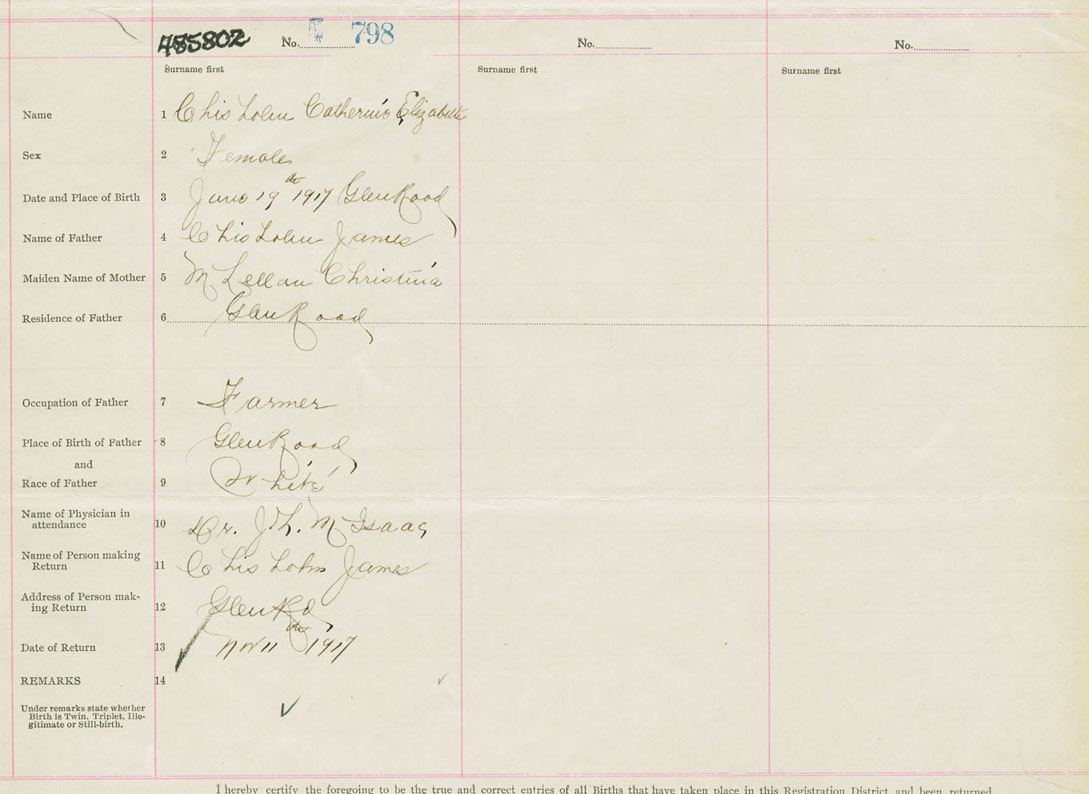 485802 No. 798 No. No.
Surname first Surname first Surname first
Name 1 Chisholm Catherine Elizabeth
Sex 2 Female
Date and Place of Birth 3 June 19th 1917 Glen Road
Name of Father 4 Chisholm James
Maiden Name of Mother 5 McLellan Christina
Residence of Father 6 Glen Road
Occupation of Father 7 Farmer
Place of Birth of Father 8 Glen Road
and
Race of Father 9 White
Name of Physician in
attendance 10 Dr. J. L. McIsaac
Name of Person making
Return 11 Chisholm James
Address of Person mak-
ing Return 12 Glen Rd
Date of Return 13 Nov 11th 1917
REMARKS 14
Under remarks state whether
Birth is Twin, Triplet, Ille-
gitimate or Still-birth.
I hereby certify the foregoing to be the true and correct entries of all Births that have taken place in this Registration District and been returned